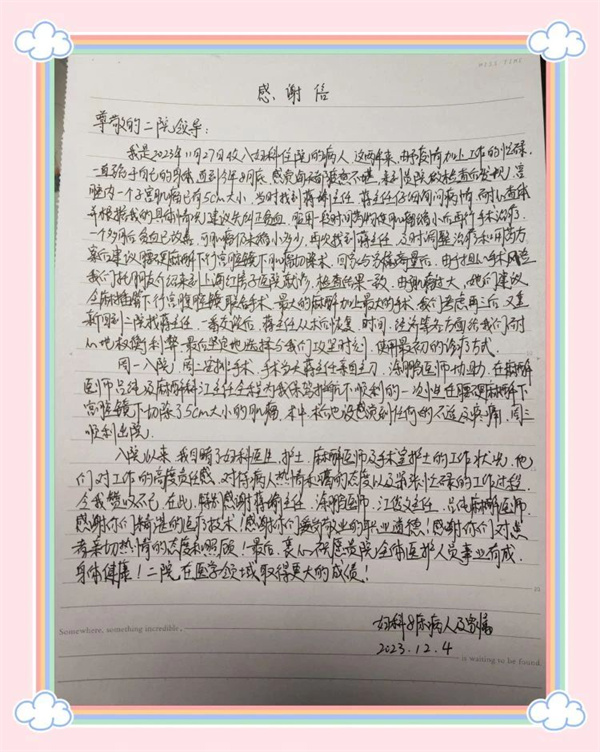 MISS TIME
感谢信
尊敬的二院领导:
我是2023年11月27日收入妇科住院的病人,这两年来,由于疫情加上工作的忙碌,
一直疏于自己的身体,直到今年9月底,感觉疲惫不堪,来到贵院做检查后发现宫
腔内一个子宫肌瘤已有5cm大小,当时找到蒋婧主任,蒋主任仔细询问病情,耐心查体
并根据我的具体情况建议先纠正贫血,服用一段时间药物使肌瘤缩小后再行手术治疗。
一个多月后贫血已改善,可肌瘤仍未缩小多少,再次找到蒋主任,及时调整治疗和用药方
案后建议腰硬麻醉下行宫腔镜下肌瘤切除术,回家与家属商量后,由于担心手术风险
我们托朋友介绍来到上海红房子医院就诊,检查结果一致,由于肌瘤过大,她们建议
全麻插管下行宫腹腔镜联合手术,最大的麻醉加上最大的手术,我们考虑再三后,又重
新回到二院找蒋主任,一番交谈后,蒋主任从术后恢复、时间、经济等各方面给我们耐
心地权衡利弊,最后坚定地选择与我们攻坚时刻,使用最初的诊疗方式。
周一入院,周二安排手术,手术当天蒋主任亲自主刀,涂鹏医师协助,在麻醉
医师吕纬及麻醉科江主任全程为我保驾护航下顺利的一次性在腰硬麻醉下
宫腔镜下切除了5cm大小的肌瘤,术中术后也没感觉到任何的不适及疼痛,周三
顺利出院。
入院以来,我目睹了妇科医生、护士、麻醉医师及手术室护士的工作状况,他
们对工作的高度责任感,对待病人热情和蔼的态度以及紧张忙碌的工作过程,
令我赞叹不已,在此,特别感谢蒋婧主任、涂鹏医师、江主任、吕纬麻醉医师,
感谢你们精湛的医疗技术!感谢你们爱岗敬业的职业道德!感谢你们对患
者亲切热情的态度和照顾!最后,衷心祝愿贵院全体医护人员事业有成,
身体健康!二院在医学领域取得更大的成绩!
妇科8床病人及家属
Somewhere, something incredible
2023.12.4
is waiting to be found